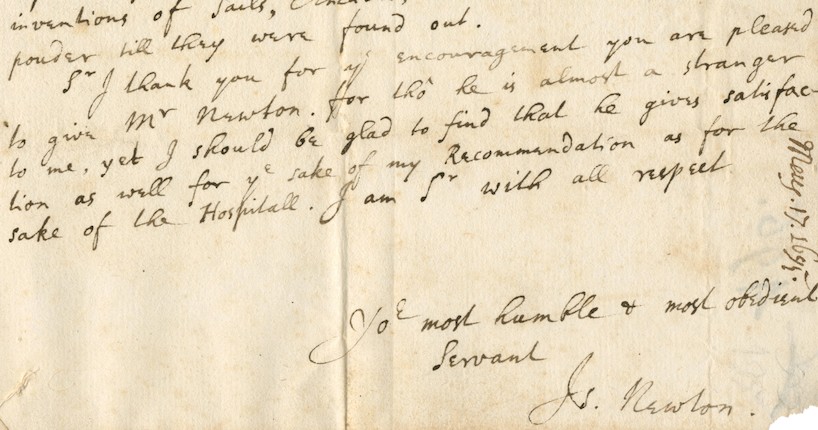 inventions of Sails,
pouder till they were found out.
Sr I thank you for ye encouragement you are pleased
to give Mr Newton. for tho he is almost a stranger
to me, yet I should be glad to find that he gives satisfac-
tion as well for ye sake of my Recommendation as for the
sake of the Hospitall. I am Sr with all respect
Yor most humble & most obedient
Servant
Is. Newton.
May. 17. 1695.